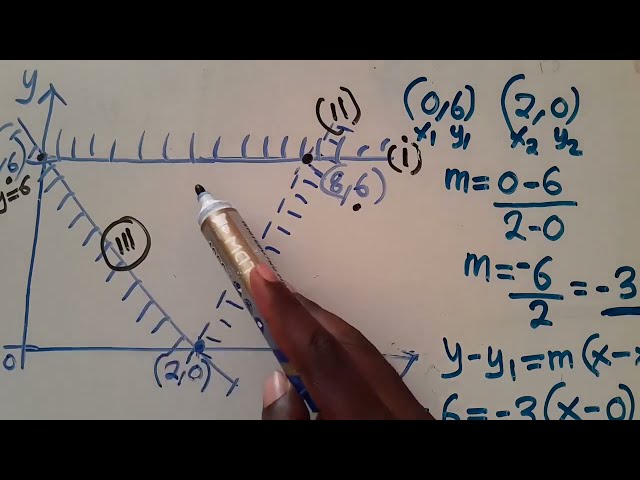 y
(II)
(i)
,6)
y=6
III
0
(2,0)
(0,6) (2,0)
x₁ y₁ x₂ y₂
m = 0-6
2-0
m = -6
2 = -3
y-y₁=m(x-x
6=-3(x-0)